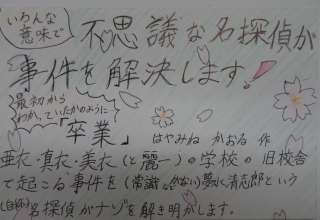 いろんな
意味で
不思議な名探偵が
事件を解決します!
最初から
わかっていたかのように
「卒業」 はやみね かおる 作
亜衣・真衣・美衣(と麗一)の学校の旧校舎
で起こる事件を(常識のない)夢水清志郎という
(自称)名探偵がナゾを解き明かします。